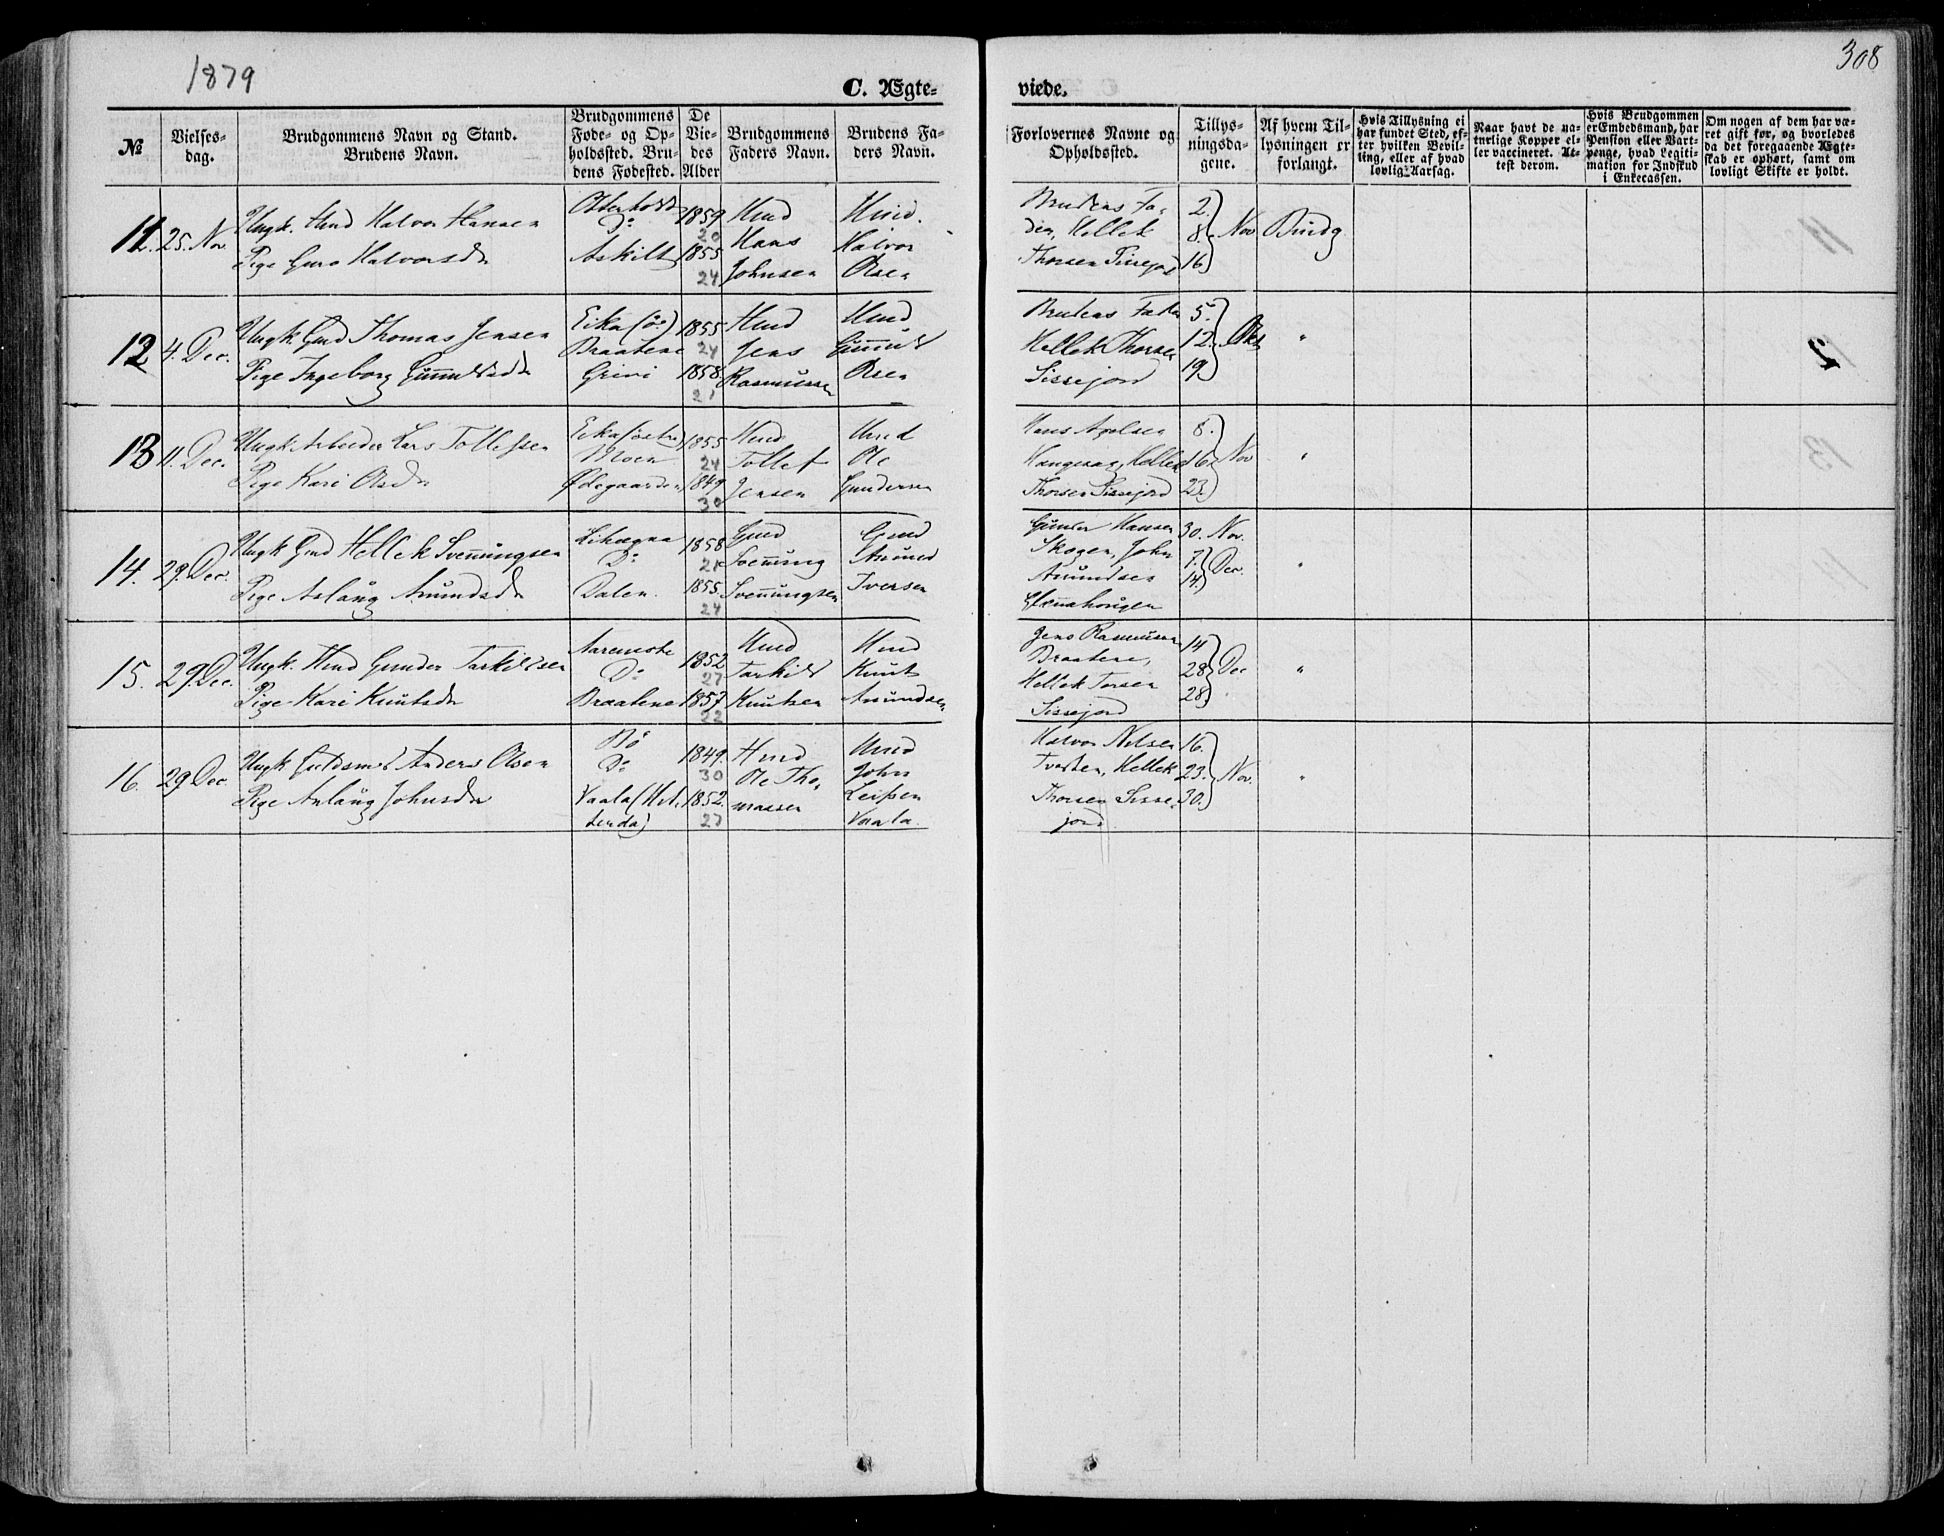 1879
308
C. Ægte-
viede.
№
Vielses-
dag.
Brudgommens Navn og Stand.
Brudens Navn.
Brudgommens
Føde- og Op-
holdssted. Bru-
dens Fødested.
De
Vie-
des
Alder
Brudgommens
Faders Navn.
Brudens Fa-
ders Navn.
Forlovernes Navne og
Opholdssted.
Tillys-
ningsda-
gene.
Af hvem Til-
lysningen er
forlangt.
Hvis Tillysning ei
har fundet Sted, ef-
ter hvilken Bevil-
ling, eller af hvad
lovlig Aarsag.
Naar havt de na-
turlige Kopper el-
ler vaccineret. At-
test derom.
Hvis Brudgommen
er Embedsmand, har
Pension eller Vart-
penge, hvad Legiti-
mation for Indskud
i Enkecassen.
Om nogen af dem har væ-
ret gift før, og hvorledes
da det foregaaende Ægte-
skab er ophørt, samt om
lovligt Skifte er holdt.
11. 25. Nov.
Ungk. Hmd Halvor Hansen
Pige Guro Halvorsdr
Do
Askilt
1859
20
1855
24
Hmd
Hans
Johnsen
Hmd.
Halvor
Olsen
Brudens Fa-
der, Hellek
Thorsen Sissejord
2.
8.
16.
Nov
Brudg.
12 4. Dec.
Ungk Gmd Thomas Jensen
Pige Ingeborg Gunnulsdr
Eika (ös)
Braatene
Grini
1855
24
1858
21
Hmd
Jens
Rasmussen
Hmd
Gunnuls
Olsen
Brudens Fader
Hellek Thorsen
Sissejord
5.
12.
19.
Okt
"
2
13 11. Dec.
Ungk: Arbeider Lars Tollefsen
Pige Kari Olsdr
Eika (östre
Moen
Ødegaarden
1855
24
1849
30
Hmd
Tollef
Jensen
Hmd
Ole
Gundersen
Hans Axelsen
Hellek
Thorsen Sissejord
8.
16.
23.
Nov
"
14. 29. Dec.
Ungk Gmd Hellek Svennungsen
Pige Aslaug Amundsdr
Do
Dalen.
1858
21
1855.
24
Gmd
Svennung
Svennungsen
Gmd
Amund
Iversen
Gunder Hansen
Skogen, John
Amundsen
30. Nov.
7.
14.
Dec.
"
15. 29. Dec.
Ungk. Hmd Gunder Tarkildsen
Pige Kari Knutsdr
Do
Braatene
1852
27
1857
22
Hmd
Tarkild
Knutsen
Hmd
Knut
Amundsen
Jens Rasmussen
Braatene,
Hellek Torsen
Sissejord
14
28
28
Dec
"
16. 29 Dec.
Ungk Guldsmed Anders Olsen
Pige Aslaug Johnsdr
Bö
Do
Vaala (Hit-
terdal)
1849.
30
1852.
27
Hmd
Ole Tho-
massen
Hmd
John
Leifsen
Vaala.
Halvor Nilsen
Tveiten, Hellek
Thorsen Sisse-
jord
16.
23.
30.
Nov.
"